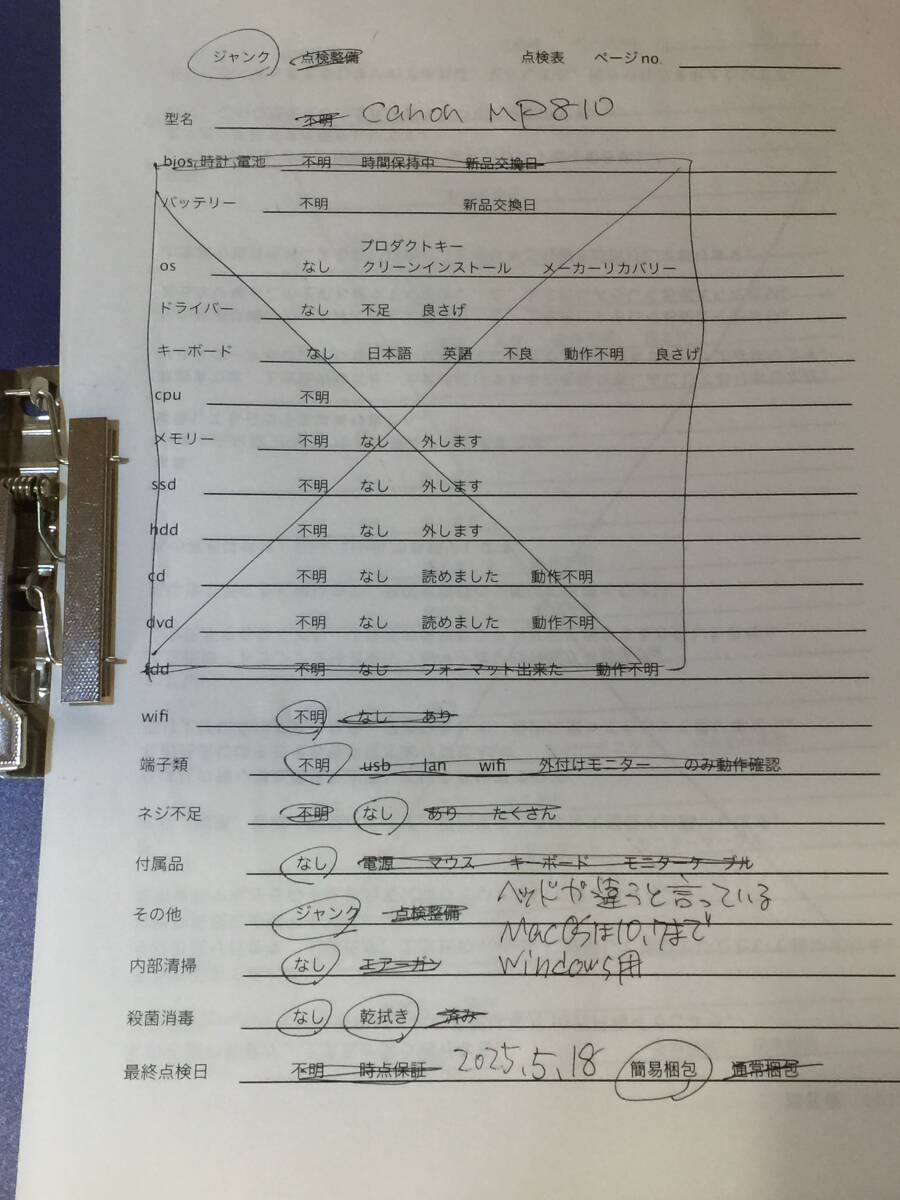 ジャンク 点検整備 点検表 ページno.
型名 不明 Canon MP810
bios,時計,電池 不明 時間保持中 新品交換日
バッテリー 不明 新品交換日
プロダクトキー
os なし クリーンインストール メーカーリカバリー
ドライバー なし 不足 良さげ
キーボード なし 日本語 英語 不良 動作不明 良さげ
cpu 不明
メモリー 不明 なし 外します
ssd 不明 なし 外します
hdd 不明 なし 外します
cd 不明 なし 読めました 動作不明
dvd 不明 なし 読めました 動作不明
fdd 不明 なし フォーマット出来た 動作不明
wifi 不明 なし あり
端子類 不明 usb lan wifi 外付けモニター のみ動作確認
ネジ不足 不明 なし あり たくさん
付属品 なし 電源 マウス キーボード モニターケーブル
ヘッドが違うと言っている
その他 ジャンク 点検整備
MacOSは10,7まで
内部清掃 なし エアーガン Windows用
殺菌消毒 なし 乾拭き 済み
最終点検日 不明 時点保証 2025,5,18 簡易梱包 通常梱包